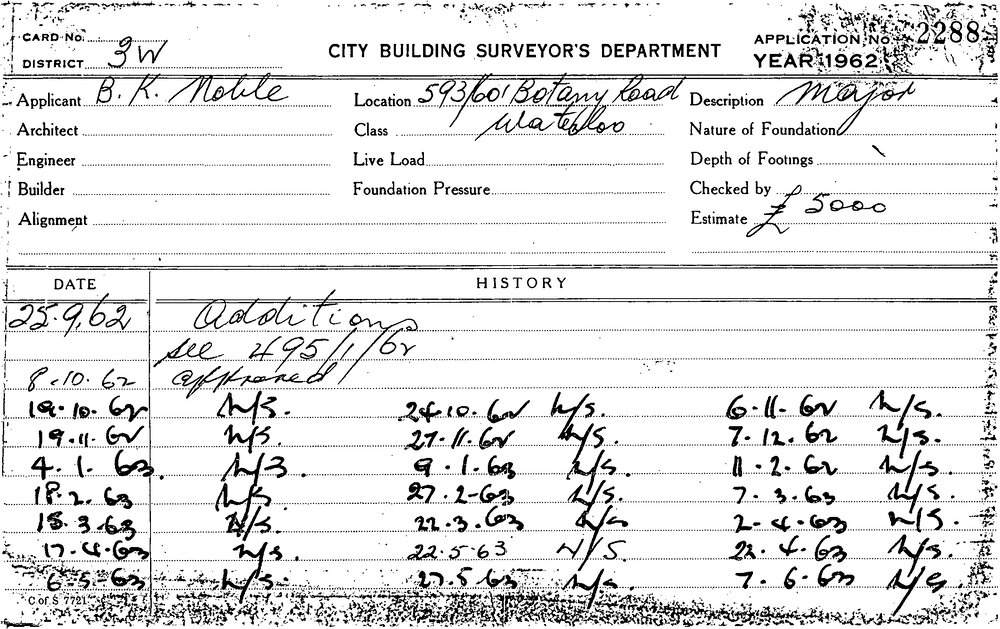 CARD No.
DISTRICT 3W
CITY BUILDING SURVEYOR'S DEPARTMENT
APPLICATION No. 2288
YEAR 1962
Applicant B. K. Noble Location 593/601 Botany Road Description Major
Architect Class Waterloo Nature of Foundation
Engineer Live Load Depth of Footings
Builder Foundation Pressure Checked by
Alignment Estimate £ 5000
DATE HISTORY
25.9.62 Additions
see 495/1/62
8.10.62 approved
19.10.62 N/S. 24.10.62 N/S. 6.11.62 N/S.
19.11.62 N/S. 27.11.62 N/S. 7.12.62 N/S.
4.1.63 N/S 9.1.63 N/S. 11.2.62 N/S.
18.2.63 N/S 27.2.63 N/S. 7.3.63 N/S.
18.3.63 N/S. 22.3.63 N/S 2.4.63 N/S.
17.4.63 N/S. 22.5.63 N/S 22.4.63 N/S.
6.5.63 N/S. 27.5.63 N/S 7.6.63 N/S
C of S 7721